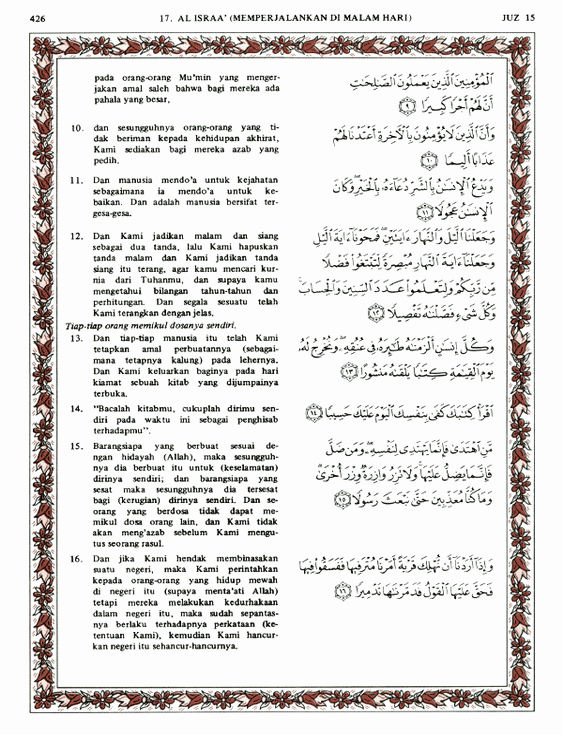 426
17. AL ISRAA' (MEMPERJALANKAN DI MALAM HARI)
JUZ 15
pada orang-orang Mu'min yang menger-
jakan amal saleh bahwa bagi mereka ada
pahala yang besar,
10. dan sesungguhnya orang-orang yang ti-
dak beriman kepada kehidupan akhirat,
Kami sediakan bagi mereka azab yang
pedih.
11. Dan manusia mendo'a untuk kejahatan
sebagaimana ia mendo'a untuk ke-
baikan. Dan adalah manusia bersifat ter-
gesa-gesa.
12. Dan Kami jadikan malam dan siang
sebagai dua tanda, lalu Kami hapuskan
tanda malam dan Kami jadikan tanda
siang itu terang, agar kamu mencari kur-
nia dari Tuhanmu, dan supaya kamu
mengetahui bilangan tahun-tahun dan
perhitungan. Dan segala sesuatu telah
Kami terangkan dengan jelas.
Tiap-tiap orang memikul dosanya sendiri.
13. Dan tiap-tiap manusia itu telah Kami
tetapkan amal perbuatannya (sebagai-
mana tetapnya kalung) pada lehernya.
Dan Kami keluarkan baginya pada hari
kiamat sebuah kitab yang dijumpainya
terbuka.
14. "Bacalah kitabmu, cukuplah dirimu sen-
diri pada waktu ini sebagai penghisab
terhadapmu".
15. Barangsiapa yang berbuat sesuai de-
ngan hidayah (Allah), maka sesungguh-
nya dia berbuat itu untuk (keselamatan)
dirinya sendiri; dan barangsiapa yang
sesat maka sesungguhnya dia tersesat
bagi (kerugian) dirinya sendiri. Dan se-
orang yang berdosa tidak dapat me-
mikul dosa orang lain, dan Kami tidak
akan meng'azab sebelum Kami mengu-
tus seorang rasul.
16. Dan jika Kami hendak membinasakan
suatu negeri, maka Kami perintahkan
kepada orang-orang yang hidup mewah
di negeri itu (supaya menta'ati Allah)
tetapi mereka melakukan kedurhakaan
dalam negeri itu, maka sudah sepantas-
nya berlaku terhadapnya perkataan (ke-
tentuan Kami), kemudian Kami hancur-
kan negeri itu sehancur-hancurnya.
الْمُؤْمِنِينَ الَّذِينَ يَعْمَلُونَ الصَّٰلِحَٰتِ
أَنَّ لَهُمْ أَجْرًا كَبِيرًا ۝٩
وَأَنَّ الَّذِينَ لَا يُؤْمِنُونَ بِالْآخِرَةِ أَعْتَدْنَا لَهُمْ
عَذَابًا أَلِيمًا ۝١٠
وَيَدْعُ الْإِنسَٰنُ بِالشَّرِّ دُعَاءَهُ بِالْخَيْرِ وَكَانَ
الْإِنسَٰنُ عَجُولًا ۝١١
وَجَعَلْنَا الَّيْلَ وَالنَّهَارَ ءَايَتَيْنِ فَمَحَوْنَا ءَايَةَ الَّيْلِ
وَجَعَلْنَا ءَايَةَ النَّهَارِ مُبْصِرَةً لِّتَبْتَغُوا فَضْلًا
مِّن رَّبِّكُمْ وَلِتَعْلَمُوا عَدَدَ السِّنِينَ وَالْحِسَابَ
وَكُلَّ شَيْءٍ فَصَّلْنَٰهُ تَفْصِيلًا ۝١٢
وَكُلَّ إِنسَٰنٍ أَلْزَمْنَٰهُ طَٰئِرَهُ فِي عُنُقِهِ وَنُخْرِجُ لَهُ
يَوْمَ الْقِيَٰمَةِ كِتَٰبًا يَلْقَىٰهُ مَنشُورًا ۝١٣
اقْرَأْ كِتَٰبَكَ كَفَىٰ بِنَفْسِكَ الْيَوْمَ عَلَيْكَ حَسِيبًا ۝١٤
مَّنِ اهْتَدَىٰ فَإِنَّمَا يَهْتَدِي لِنَفْسِهِ وَمَن ضَلَّ
فَإِنَّمَا يَضِلُّ عَلَيْهَا وَلَا تَزِرُ وَازِرَةٌ وِزْرَ أُخْرَىٰ
وَمَا كُنَّا مُعَذِّبِينَ حَتَّىٰ نَبْعَثَ رَسُولًا ۝١٥
وَإِذَا أَرَدْنَا أَن نُّهْلِكَ قَرْيَةً أَمَرْنَا مُتْرَفِيهَا فَفَسَقُوا فِيهَا
فَحَقَّ عَلَيْهَا الْقَوْلُ فَدَمَّرْنَٰهَا تَدْمِيرًا ۝١٦